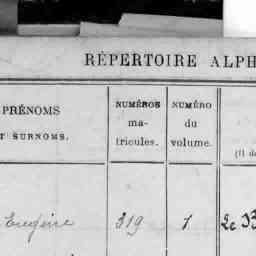 RÉPERTOIRE ALPH
PRÉNOMS
T SURNOMS.
NUMÉROS
ma-
tricules.
NUMÉRO
du
volume.
(Il d
Eugène 319 1 2e B